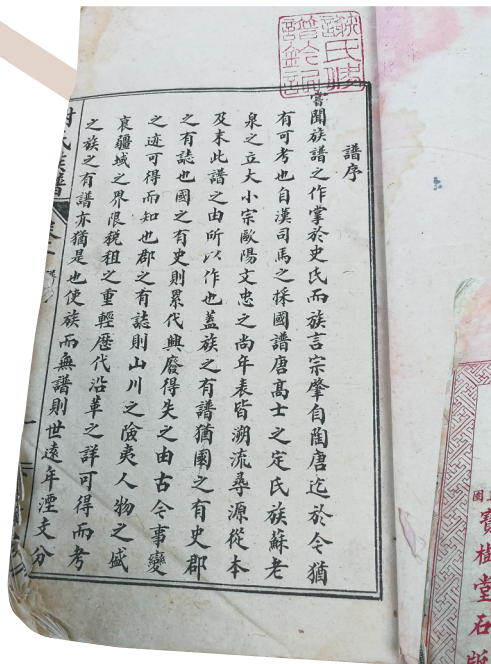 譜序
嘗聞族譜之作掌於史氏而族言宗肇自陶唐迄於今猶
有可考也自漢司馬之採國譜唐髙士之定氏族蘇老
泉之立大小宗歐陽文忠之尚年表皆溯流尋源從本
及末此譜之由所以作也蓋族之有譜猶國之有史郡
之有誌也國之有史則累代興廢得失之由古今事變
之迹可得而知也郡之有誌則山川之險夷人物之盛
衰疆域之界限稅租之重輕歷代沿革之詳可得而考
之族之有譜亦猶是也使族而無譜則世遠年湮支分
氏族譜
寶樹堂石版